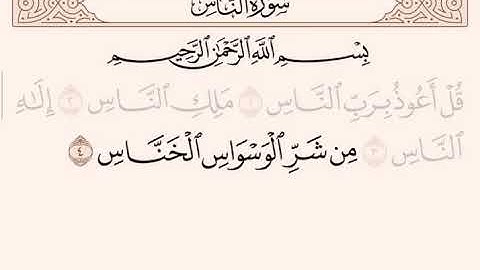 سُورَةُ النَّاسِ
بِسْمِ ٱللَّهِ ٱلرَّحْمَٰنِ ٱلرَّحِيمِ
قُلْ أَعُوذُ بِرَبِّ ٱلنَّاسِ ١ مَلِكِ ٱلنَّاسِ ٢ إِلَٰهِ
ٱلنَّاسِ ٣ مِن شَرِّ ٱلْوَسْوَاسِ ٱلْخَنَّاسِ ٤